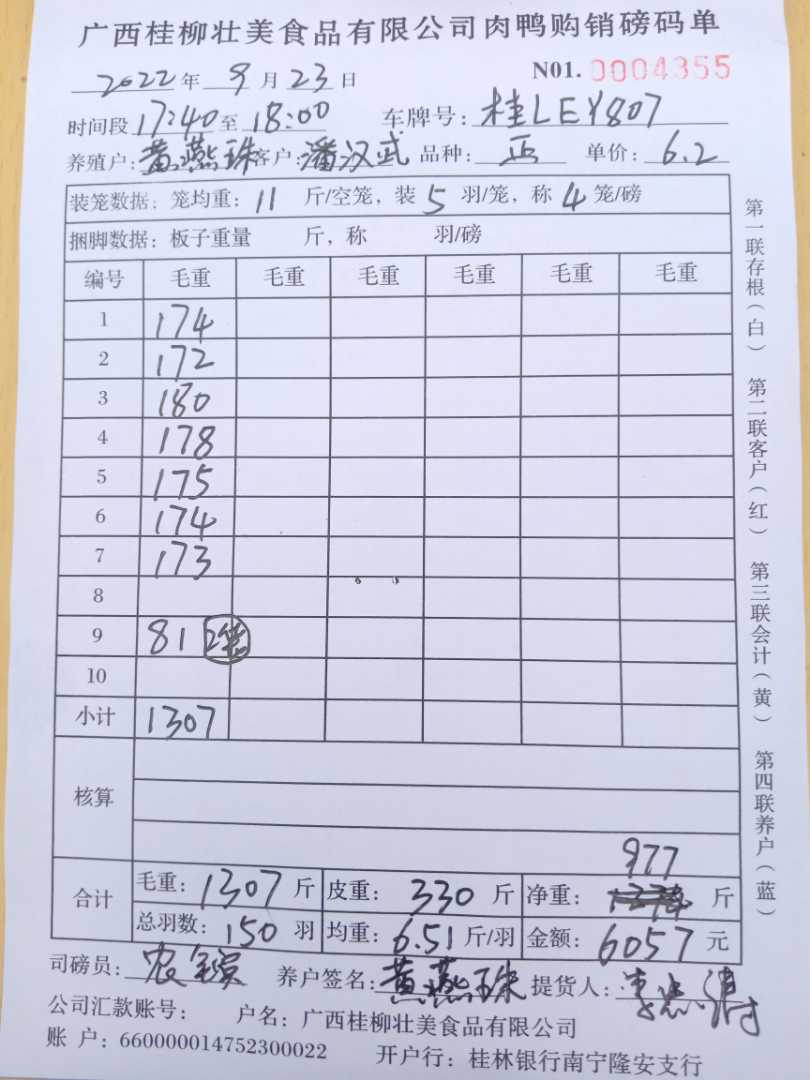 广西桂柳壮美食品有限公司肉鸭购销磅码单
2022年9月23日 N01. 0004355
时间段17:40至18:00 车牌号:桂LEY807
养殖户:黄燕珠客户:潘汉武 品种:正 单价:6.2
装笼数据:笼均重:11 斤/空笼,装5羽/笼,称4笼/磅
捆脚数据:板子重量 斤,称 羽/磅
编号 毛重 毛重 毛重 毛重 毛重 毛重
1 174
2 172
3 180
4 178
5 175
6 174
7 173
8
9 81 2笼
10
小计 1307
核算
977
合计 毛重:1307斤 皮重:330斤 净重: 斤
总羽数:150羽 均重:6.51斤/羽 金额:6057元
司磅员:农 养户签名:黄燕珠 提货人:李
公司汇款账号: 户名:广西桂柳壮美食品有限公司
账 户:660000014752300022 开户行:桂林银行南宁隆安支行
第一联存根(白) 第二联客户(红) 第三联会计(黄) 第四联养户(蓝)